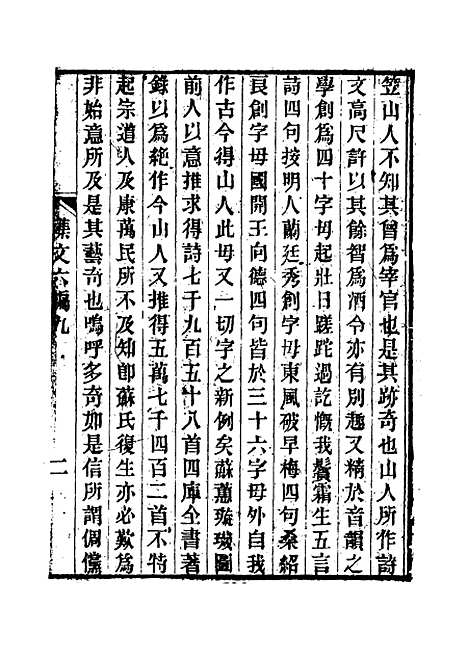 笠山人不知其曾爲宰官也是其跡奇也山人所作詩
文高尺許以其餘智爲酒令亦有别趣又精於音韻之
學創爲四十字母起壯日蹉跎過訖慨我鬢霜生五言
詩四句按明人蘭廷秀創字母東風破早梅四句桑紹
良創字母國開王向德四句皆於三十六字母外自我
作古今得山人此母又一切字之新例矣蘇蕙璇璣圖
前人以意推求得詩七千九百五十八首四庫全書著
錄以爲絶作今山人又推得五萬七千四百二首不特
起宗道人及康萬民所不及知卽蘇氏復生亦必歎爲
非始意所及是其藝奇也嗚呼多奇如是信所謂倜儻
襍文六編九
二